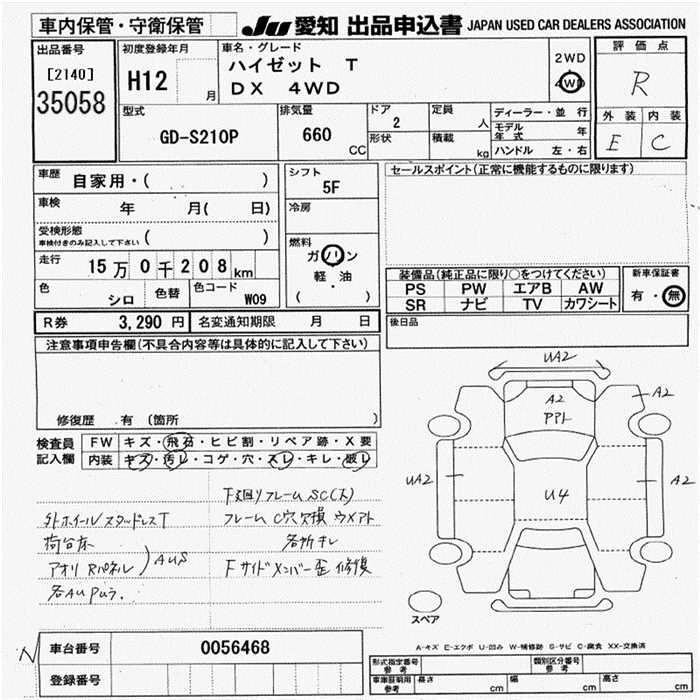 車内保管・守衛保管
JU 愛知 出品申込書 JAPAN USED CAR DEALERS ASSOCIATION
出品番号
[2140]
35058
初度登録年月
H12 月
車名・グレード
ハイゼット T
DX 4WD
2WD
4WD
評価点
R
外装 内装
E C
型式
GD-S210P
排気量
660 CC
ドア
2
形状
定員
人
積載
kg
ディーラー・並行
モデル年式 年
ハンドル 左・右
車歴 自家用・( )
車検 年 月( 日)
受検形態
車検付きのみ記入して下さい ( )
走行 15万0千208km
色 シロ 色替 色コード W09
シフト
5F
冷房
燃料
ガソリン
軽・油
( )
セールスポイント(正常に機能するものに限ります)
装備品(純正品に限り○をつけてください)
PS PW エアB AW
SR ナビ TV カワシート
新車保証書
有・無
後日品
R券 3,290円 名変通知期限 月 日
注意事項申告欄(不具合内容等は具体的に記入して下さい)
修復歴 有 (箇所 )
検査員記入欄
FW キズ・飛石・ヒビ割・リペア跡・X要
内装 キズ・汚レ・コゲ・穴・スレ・キレ・破レ
外ホイールスタッドレスT
荷台床
アオリ Rパネル ) AUS
各AU Pぅ.
下廻りフレームSC(大)
フレームC穴欠損 ウメアト
各所キレ
Fサイドメンバー歪 修複
UA2
A2
PPL
A2
UA2
U4
A2
スペア
A-キズ E-エクボ U-凹み W-補修跡 S-サビ C-腐食 XX-交換済
N
車台番号 0056468
登録番号
形式指定番号 参考
類別区分番号 参考
車庫証明用 参考
長さ cm 幅 cm 高さ cm